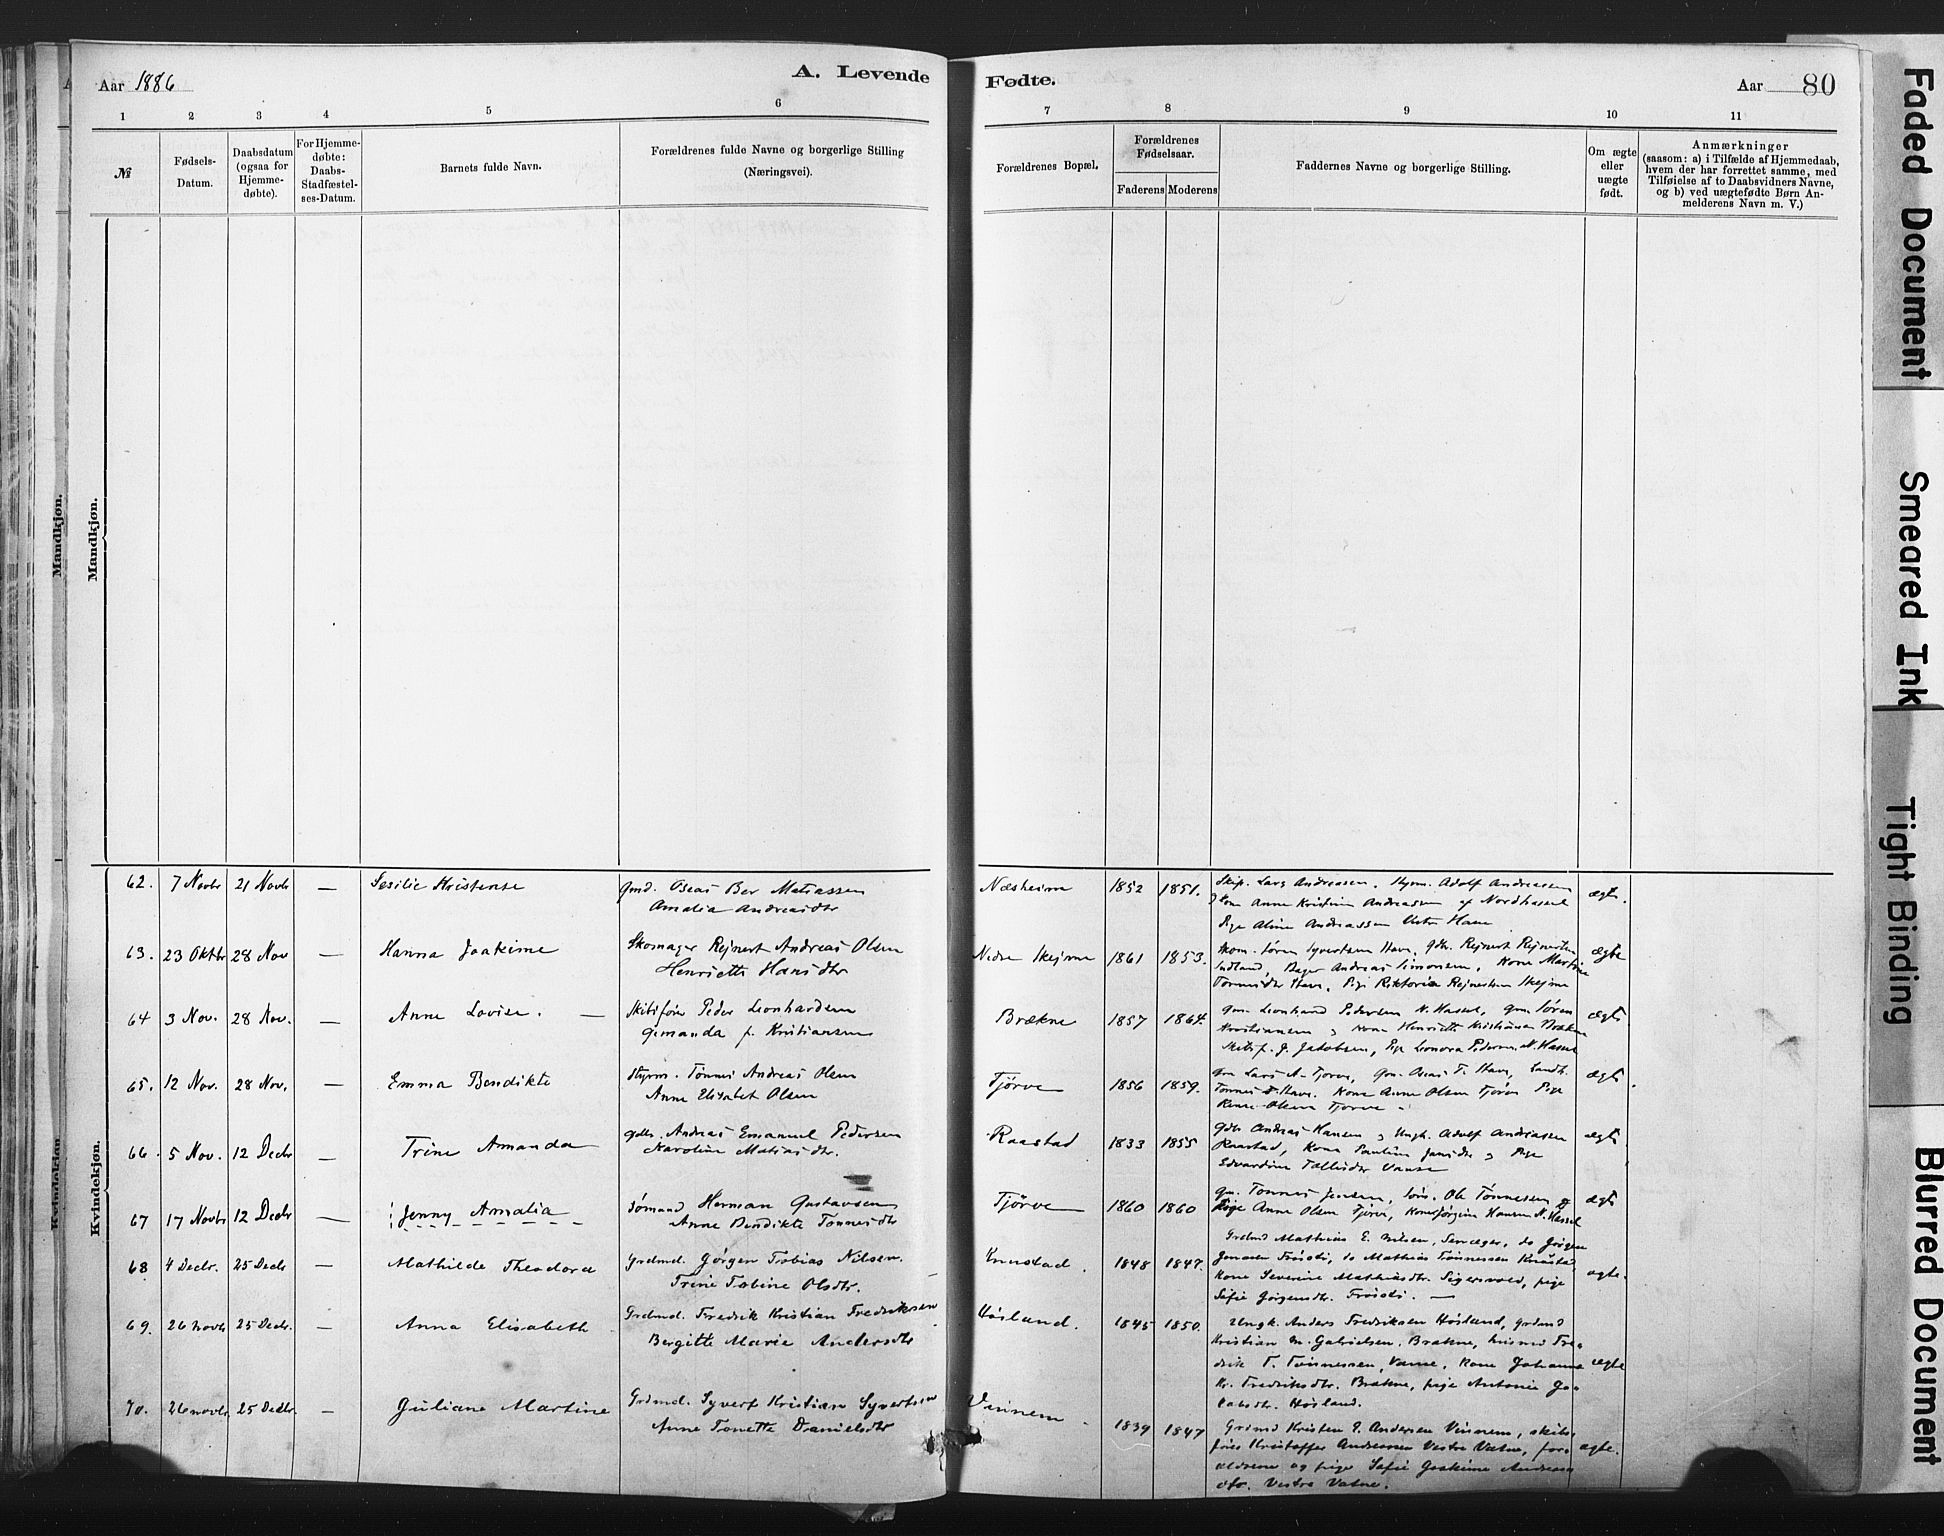 Aar 1886
A. Levende
Fødte.
Aar 80
1 2 3 4 5 6
7 8 9 10 11
№
Fødsels-
Datum.
Daabsdatum
(ogsaa for
Hjemme-
døbte).
For Hjemme-
døbte:
Daabs-
Stadfæstel-
ses-Datum.
Barnets fulde Navn.
Forældrenes fulde Navne og borgerlige Stilling
(Næringsvei).
Forældrenes Bopæl.
Forældrenes
Fødselsaar.
Faderens Moderens
Faddernes Navne og borgerlige Stilling.
Om ægte
eller
uægte
født.
Anmærkninger
(saasom: a) i Tilfælde af Hjemmedaab,
hvem der har forrettet samme, med
Tilføielse af to Daabsvidners Navne,
og b) ved uægtefødte Børn An-
melderens Navn m. V.)
Mandkjøn.
Mandkjøn.
Kvindekjøn.
Kvindekjøn.
62. 7 Novbr 21 Novbr — Sesilie Kristense
Oseas Ber Matiassen
Amalia Andreasdtr
Næsheim 1852 1851.
Skip. Lars Andreasen. Styrm. Adolf Andreassen
Kone Anne Kristine Andreasen af Nordhassel
Pige Aline Andreassen Vestre Have
ægte.
63. 23 Oktbr 28 Nov — Hanna Joakime
Skomager Rejnert Andreas Olsen
Henriette Hansdtr
Nedre Skejme 1861 1853.
Skom. Søren Syvertsen Have, Gdbr. Rejnert Rejnertsen
Indland, Bager Andreas Simonsen, Kone Martine
Tønnesdtr Have, Pige Riktoria Rejnertsen Skejme
ægte
64 3 Nov. 28 Nov. — Anne Lovise. —
Skibsfører Peder Leonhardsen
Gemanda f. Kristiansen
Brækne 1857 1864.
Gm. Leonhard Pedersen N. Hassel, Gm. Søren
Kristiansen og Kone Henriette Kristiansen Brækne
Skibsf. J. Jakobsen, Pige Leonora Pedersen N. Hassel
ægte
65. 12 Nov. 28 Nov. — Emma Bendikte
Styrm. Tønnes Andreas Olsen
Anne Elisabet Olsen
Tjørve 1856 1859.
Gm Lars A. Tjørve, Gm. Oseas T. Have,
Tønnes T. Have. Kone Anne Olsen Tjørve Pige
Olsen Tjørve
ægte
66. 5 Nov. 12 Decbr — Trine Amanda
Gdbr. Andreas Emanuel Pedersen
Karoline Matiasdtr.
Raastad 1833 1855
Gdbr Andreas Hansen og Ungk. Adolf Andreassen
Raastad, Kone Pauline Jansdtr og Pige
Edvardine Tallaksdtr Vanse
ægte
67 17 Novbr 12 Decbr — Jenny Amalia
Sømand Herman Gustavsen
Anne Bendikte Tønnesdtr
Tjørve 1860 1860
Gm. Tønnes Jensen, Søm. Ole Tønnesen og
Pige Anne Olsen Tjørve, Kone Jørgine Hansen N. Hassel
ægte
68 4 Decbr. 25 Decbr — Mathilde Theodora
Grdmd. Gørgen Tobias Nilsen.
Trine Tobine Olsdtr.
Knustad. 1848 1847.
Grdmd Mathias E. Nilsen, Sevæger, do Jørgen
Jonasen Frøisti, do Mathias Tønnessen Knustad
Kone Severine Mathiasdtr. Sigersvold, pige
Sofie Gørgensdtr. Frøisti. —
ægte.
69. 26 novbr 25 Decbr. — Anna Elisabeth
Grdmd. Fredrik Kristian Fredriksen
Bergitte Marie Andersdtr
Høsland. 1845 1850.
Ungk. Anders Fredriksen Høsland, grdmd
Kristian M. Gabrielsen. Brækne, husmd Fre-
drik T. Tønnessen, Vanse, Kone Johanne
K. Fredriksdtr. Brækne, pige Antonie Ja-
cobsdtr. Høsland.
ægte
70. 26 novbr. 25 Decbr — Guliane Martine
Grdmd. Syvert Kristian Syvertsen
Anne Tonette Danielsdtr
Vinnem 1839 1847
Grdmd Kristen G. Andersen Vinnem, skibs-
fører Kristoffer Andreassen Vestre Vatne, for-
ældrene og pige Sofie Joakime Andreas-
dtr. Vestre Vatne.
ægte.
Faded Document
Smeared Ink
Tight Binding
Blurred Document